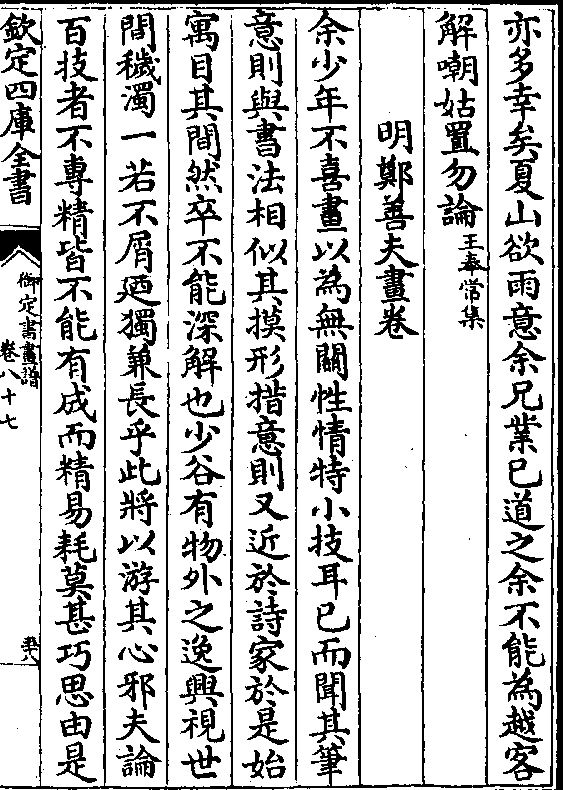 亦多幸矣夏山欲雨意余兄業已道之余不能為越客
解嘲姑置勿論王奉常集
明鄭善夫畫卷
余少年不喜畫以為無關性情特小技耳已而聞其筆
意則與書法相似其摸形措意則又近於詩家於是始
寓目其間然卒不能深解也少谷有物外之逸興視世
間穢濁一若不屑廼獨兼長乎此將以游其心邪夫論
百技者不專精皆不能有成而精易耗莫甚巧思由是
欽定四庫全書
御定書畫譜
卷八十七